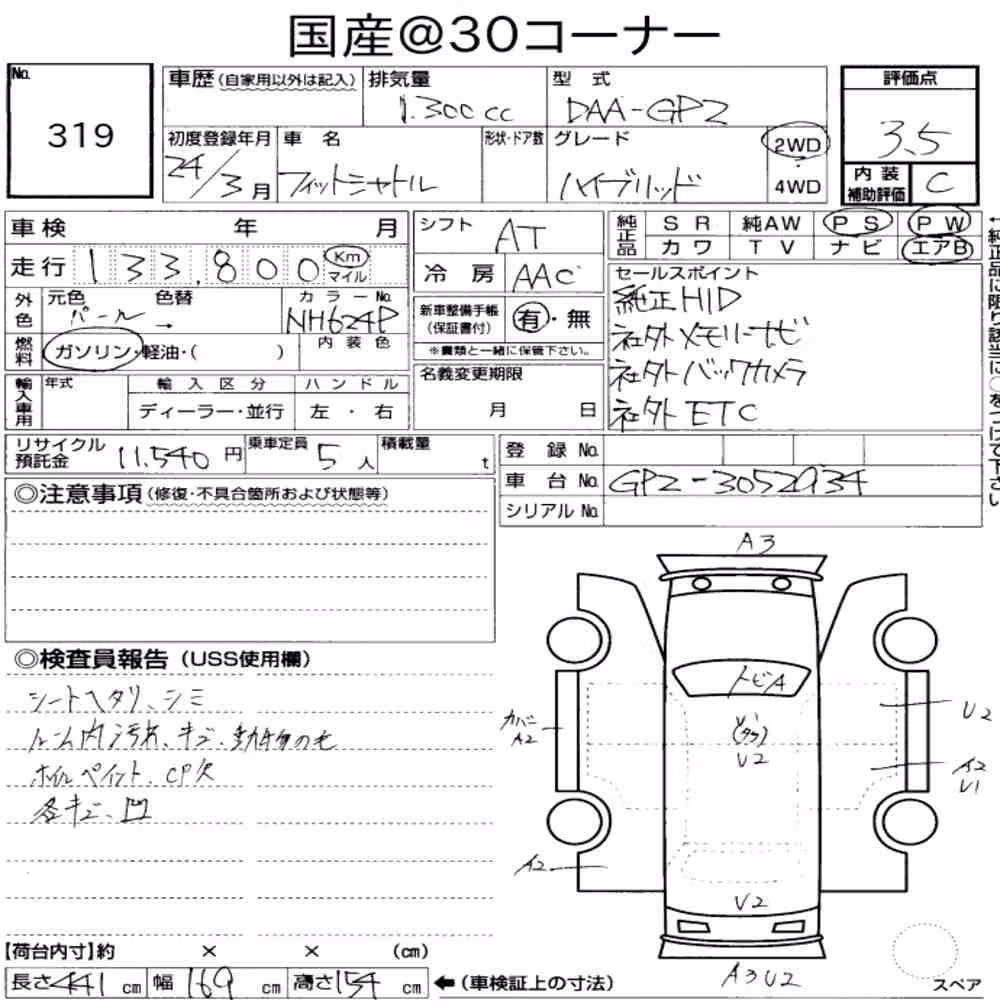 国産@30コーナー
No.
319
車歴(自家用以外は記入)
排気量
1.300cc
型式
DAA-GP2
評価点
3.5
初度登録年月
24/3月
車名
フィットシャトル
形状・ドア数
グレード
ハイブリッド
2WD
・
4WD
内装
補助評価
C
車検 年 月
走行 133,800 Km
マイル
シフト
AT
冷房 AAC
純正品
SR 純AW PS PW
カワ TV ナビ エアB
←純正品に限り該当に○をつけて下さい
外色
元色 色替
パール →
カラーNo.
NH624P
燃料
ガソリン・軽油・( )
内装色
新車整備手帳
(保証書付)
有・無
※書類と一緒に保管下さい。
セールスポイント
純正HID
社外メモリーナビ
社外バックカメラ
社外ETC
輸入車用
年式
輸入区分
ディーラー・並行
ハンドル
左・右
名義変更期限
月 日
リサイクル
預託金 11,540円
乗車定員 5人
積載量 t
登録No.
車台No. GP2-3052934
シリアルNo.
◎注意事項(修復・不具合箇所および状態等)
◎検査員報告(USS使用欄)
シートヘタリ、シミ
ルーム内汚れ、キズ、動物の毛
ホイルペイント、CP欠
各キズ、凹
A3
トビA
U2
カバー
A2
U2
A2
U1
A2
U2
A3U2
スペア
【荷台内寸】約 × × (cm)
長さ441cm 幅169cm 高さ154cm ←(車検証上の寸法)